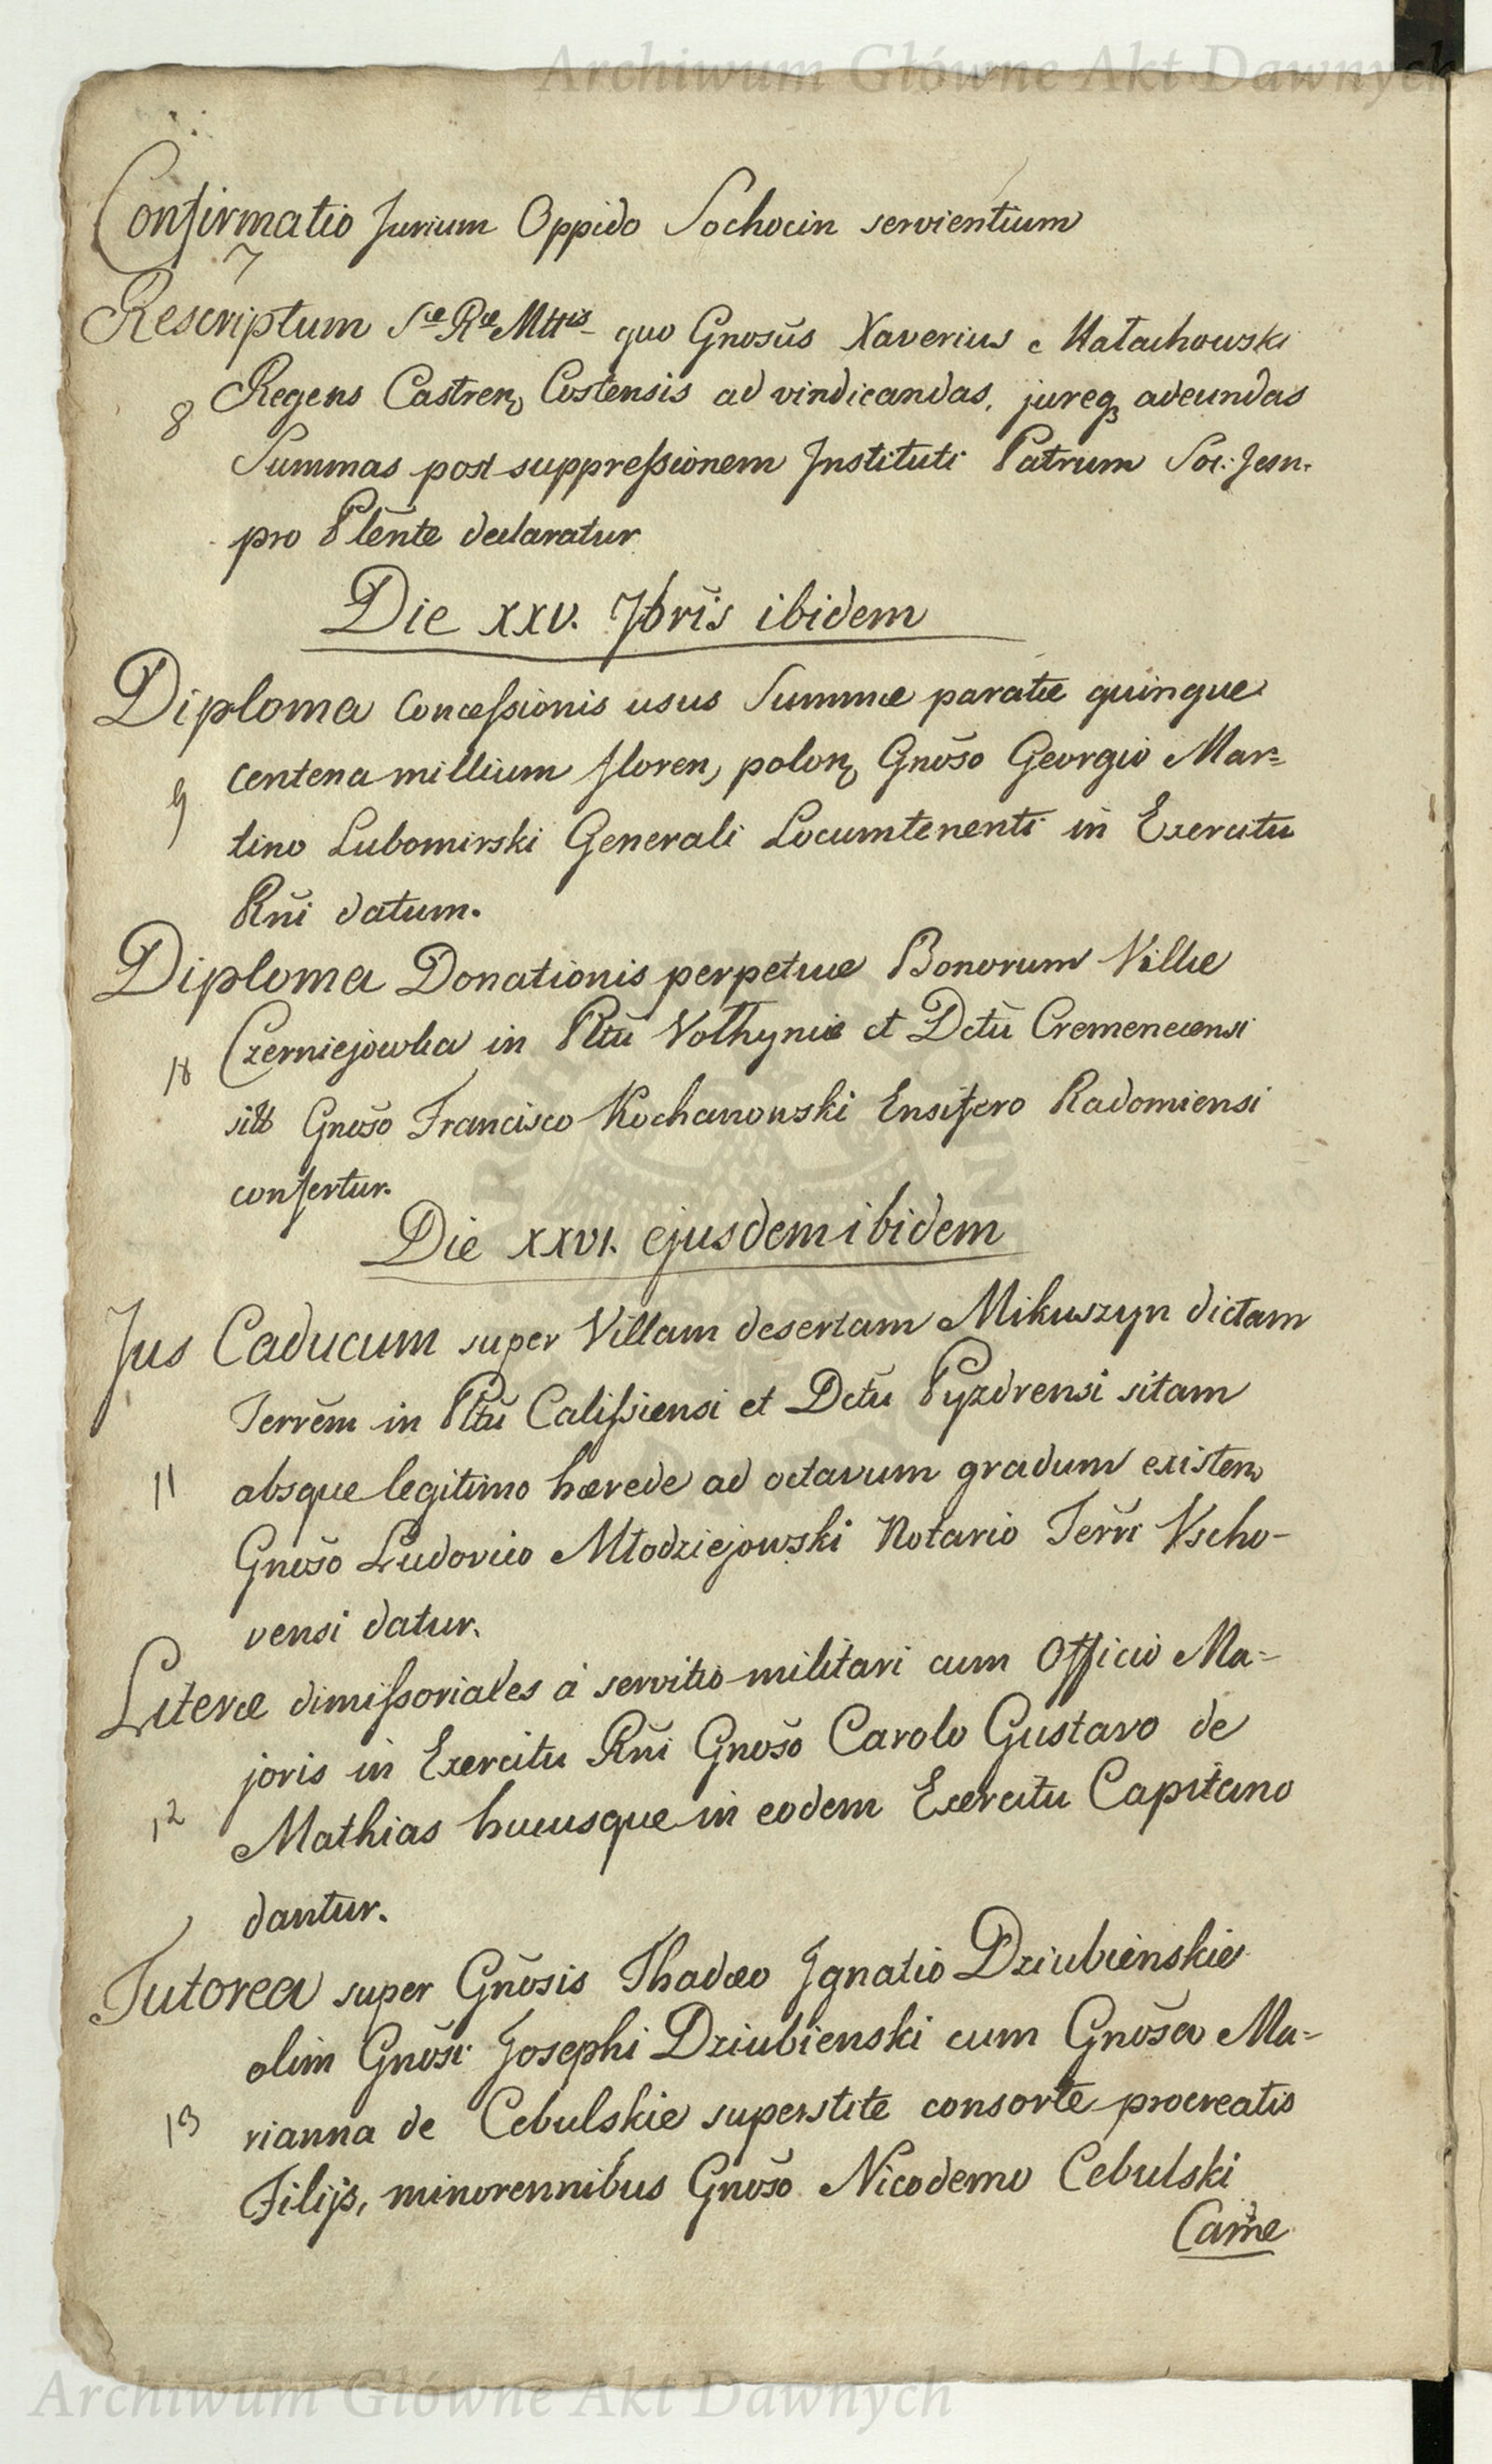 Archiwum Główne Akt Dawnych
Confirmatio Jurium Oppido Sochocin servientium
7
Rescriptum Sæ Ræ Mttis quo Gnosus Xaverius Małachowski
8 Regens Castren Costensis ad vindicandas, jureq adeundas
Summas post suppressionem Instituti Patrum Soc: Jesu.
pro Plēnte declaratur
Die XXV. 7bris ibidem
Diploma Concessionis usus Summæ paratæ quinque
9 centena millium floren, polon Gnōso Georgio Mar=
tino Lubomirski Generali Locumtenenti in Exercitu
Rñi datum.
Diploma Donationis perpetuæ Bonorum Villæ
10 Czerniejowka in Pltū Volhyniæ et Dctū Cremenecensi
sitt Gnōso Francisco Kochanowski Ensifero Radomiensi
confertur.
Die XXVI. ejusdem ibidem
Jus Caducum super Villam desertam Mikuszyn dictam
Terrēm in Pltū Calissiensi et Dctū Pyzdrensi sitam
11 absque legitimo hærede ad octavum gradum existen
Gnōso Ludovico Młodziejowski Notario Terrī Vscho-
vensi datur.
Literæ dimissoriales à servitio militari cum Officio Ma=
joris in Exercitu Rñi Gnōso Carolo Gustavo de
12 Mathias hucusque in eodem Exercitu Capitano
dantur.
Tutorea super Gnōsis Thadæo Ignatio Dziubienskie
olim Gnōsi Josephi Dziubienski cum Gnōsa Ma=
13 rianna de Cebulskie superstite consorte procreatis
Filijs, minorennibus Gnōso Nicodemo Cebulski
Came
Archiwum Główne Akt Dawnych